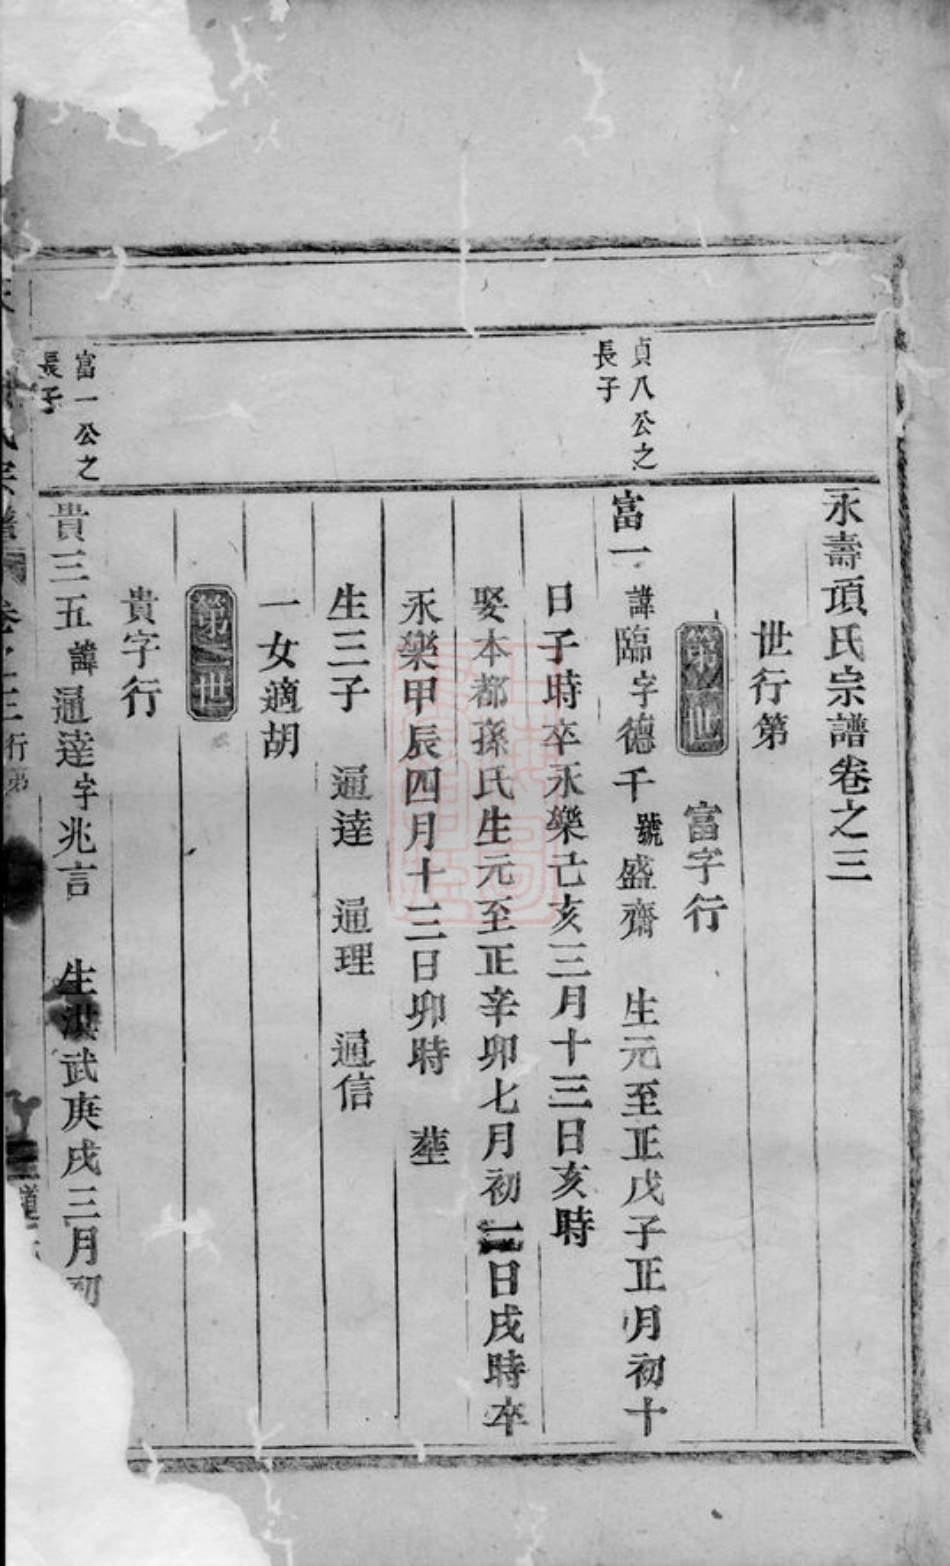 永壽項氏宗譜卷之三
世行第
第一世 富字行
貞八公之
長子
富一 諱臨字德千號盛齋 生元至正戊子正月初十
日子時卒永樂己亥三月十三日亥時
娶本都孫氏生元至正辛卯七月初二日戌時卒
永樂甲辰四月十三日卯時 塟
生三子 通達 通理 通信
一女適胡
第二世
貴字行
富一公之
長子
貴三五諱通達字兆言 生洪武庚戌三月初
氏宗譜 卷之三行第